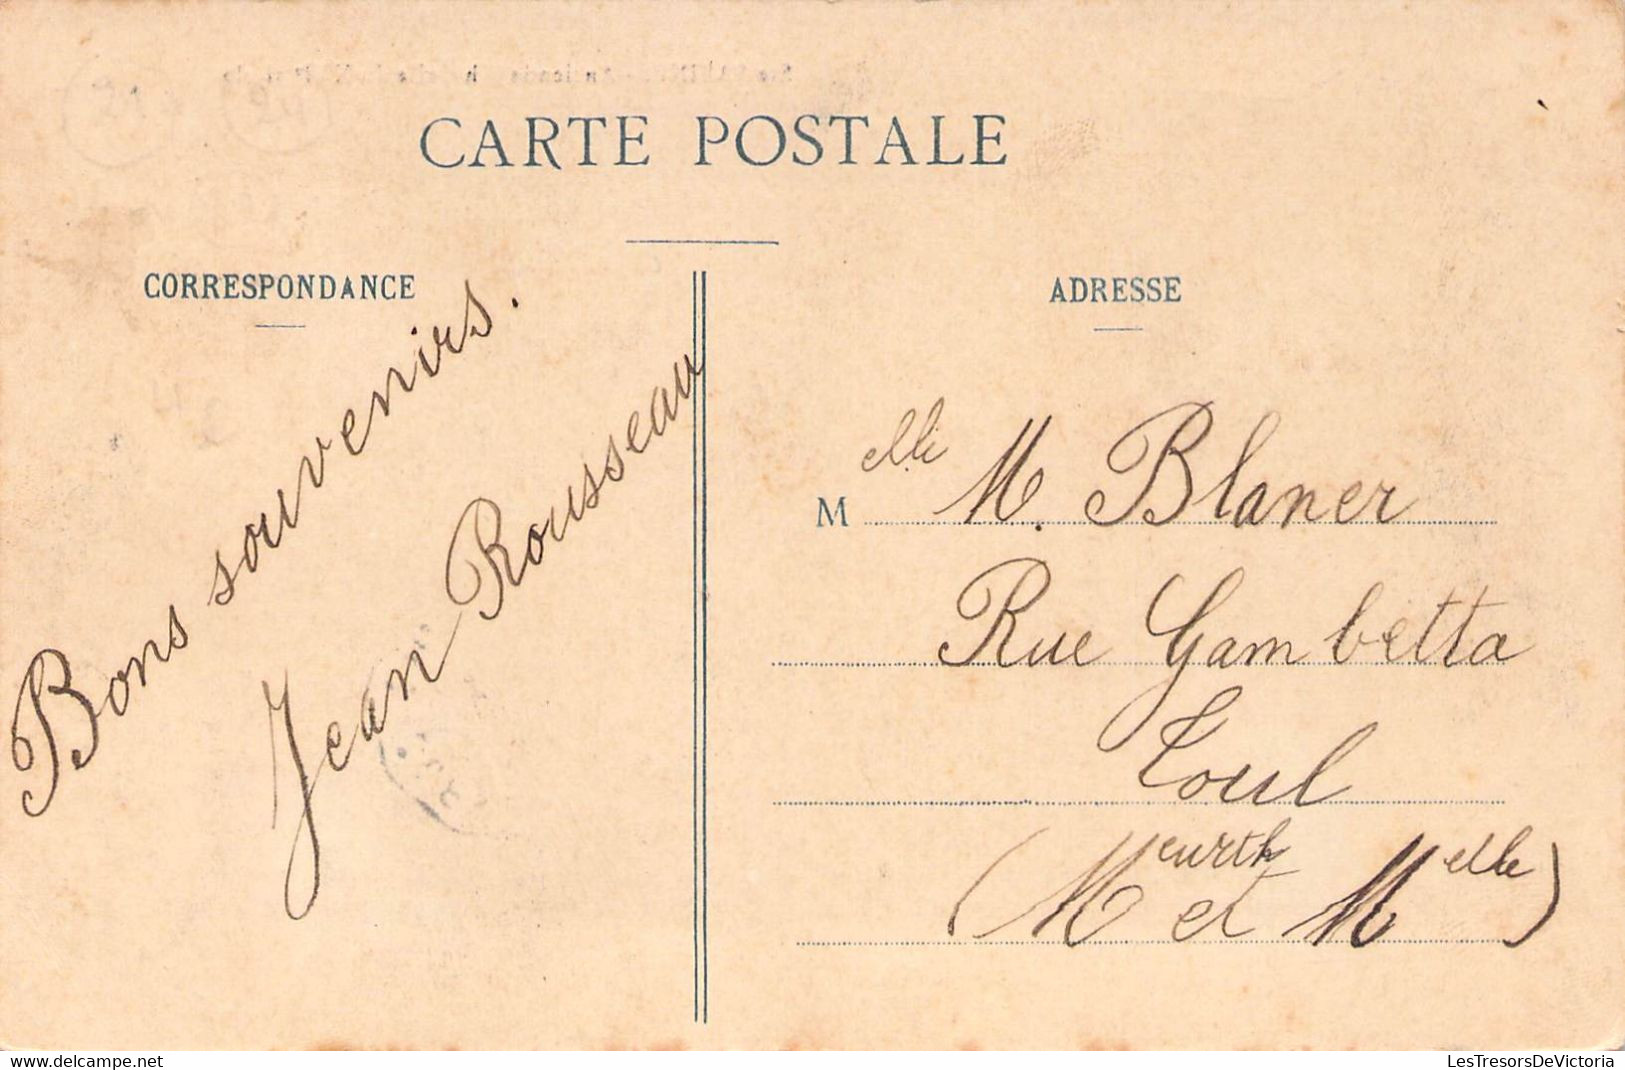 CARTE POSTALE
CORRESPONDANCE
Bons souvenirs.
Jean Rousseau
ADRESSE
M elle M. Blaner
Rue Gambetta
Toul
(Meurth et Melle)
www.delcampe.net
LesTresorsDeVictoria